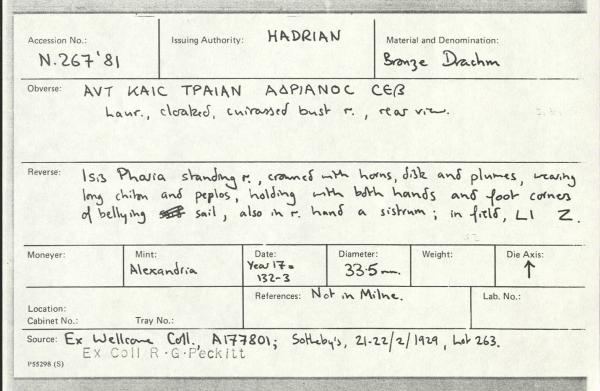 Accession No.: Issuing Authority: HADRIAN Material and Denomination:
N.267'81 Bronze Drachm
Obverse: ΑVΤ ΚΑΙC ΤΡΑΙΑΝ ΑΔΡΙΑΝΟC CΕΒ
Laur., cloaked, cuirassed bust r., rear view.
Reverse: Isis Pharia standing r., crowned with horns, disk and plumes, wearing
long chiton and peplos, holding with both hands and foot corners
of bellying sail, also in r. hand a sistrum; in field, LI Z.
Moneyer: Mint: Date: Diameter: Weight: Die Axis:
Alexandria Year 17 = 132-3 33.5 mm. ↑
References: Not in Milne. Lab. No.:
Location:
Cabinet No.: Tray No.:
Source: Ex Wellcome Coll., A177801; Sotheby's, 21-22/2/1929, Lot 263.
Ex Coll R.G.Peckitt
P55298 (S)